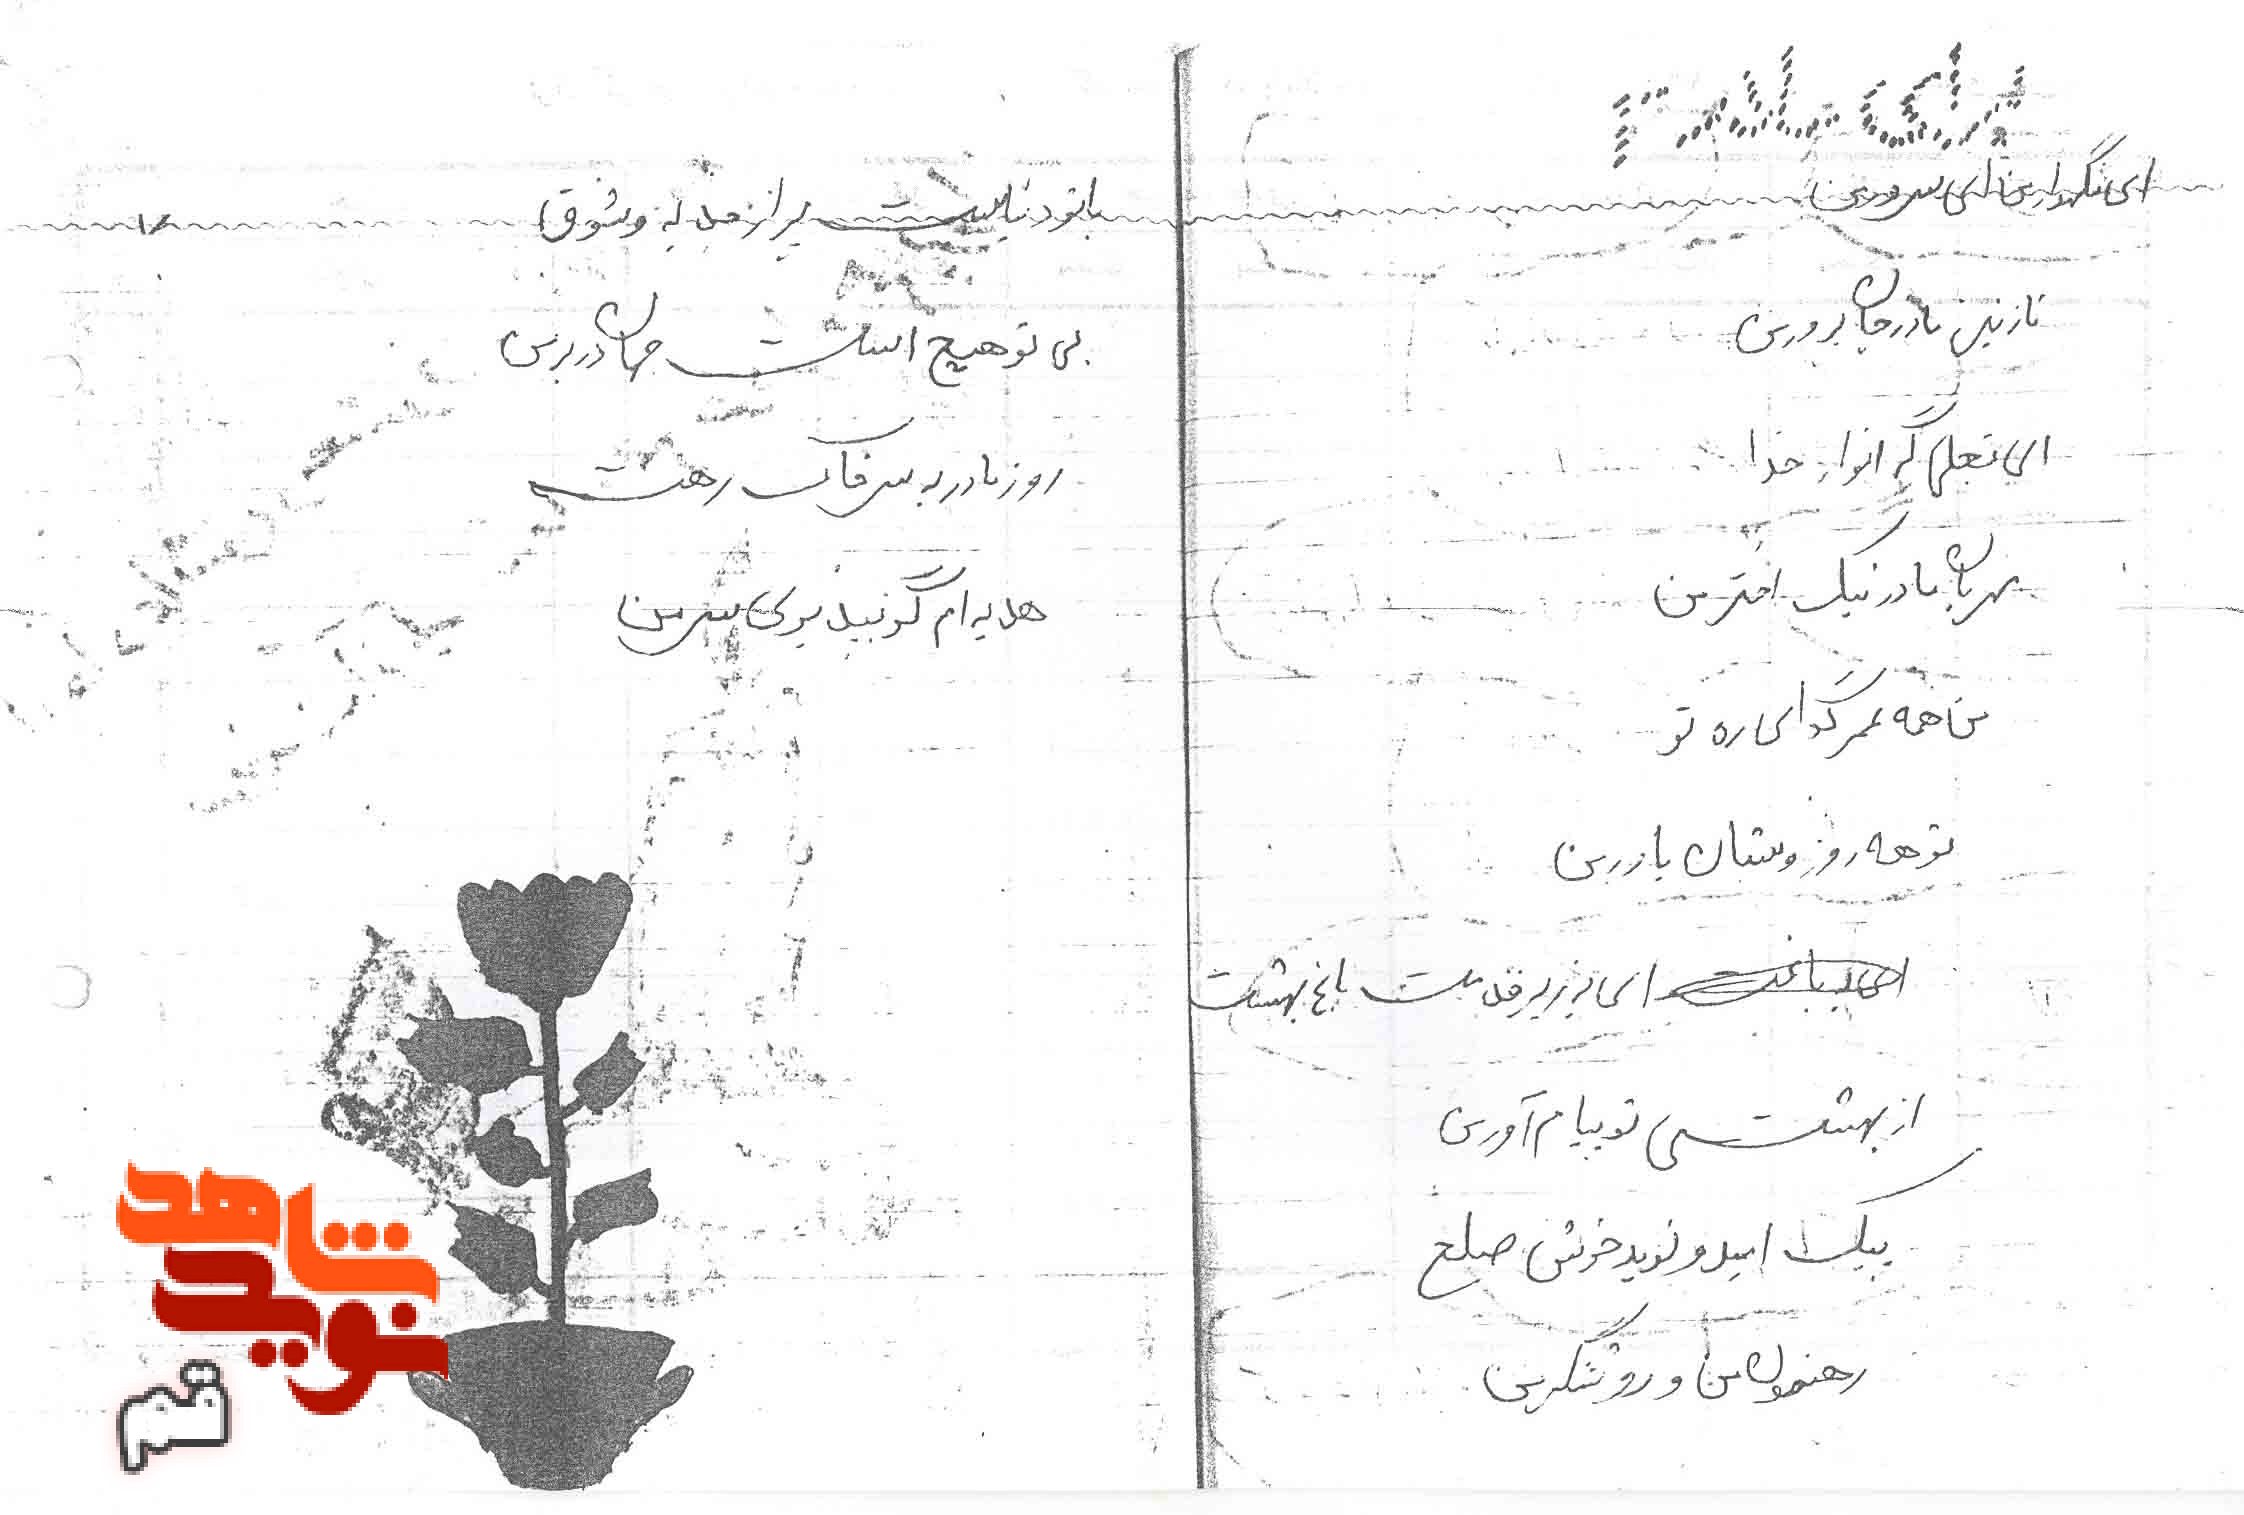 ای نگهدار من ای سرور من
نازنین مادر جان پرور من
ای تجلی گر انوار خدا
مهربان مادر نیک اختر من
من همه عمر گدای ره تو
تو همه روز و شبان یاور من
ای به زیر قدمت باغ بهشت
از بهشتی تو پیام آور من
پیک امید و نوید خوش صلح
رهنمون من و روشنگر من
با تو دنیاست پر از جذبه و شوق
بی تو هیچ است جهان در بر من
روز مادر به سر خاک رهت
هدیه ام گو نبیند بوی سر من
شاهد
نوید
قم